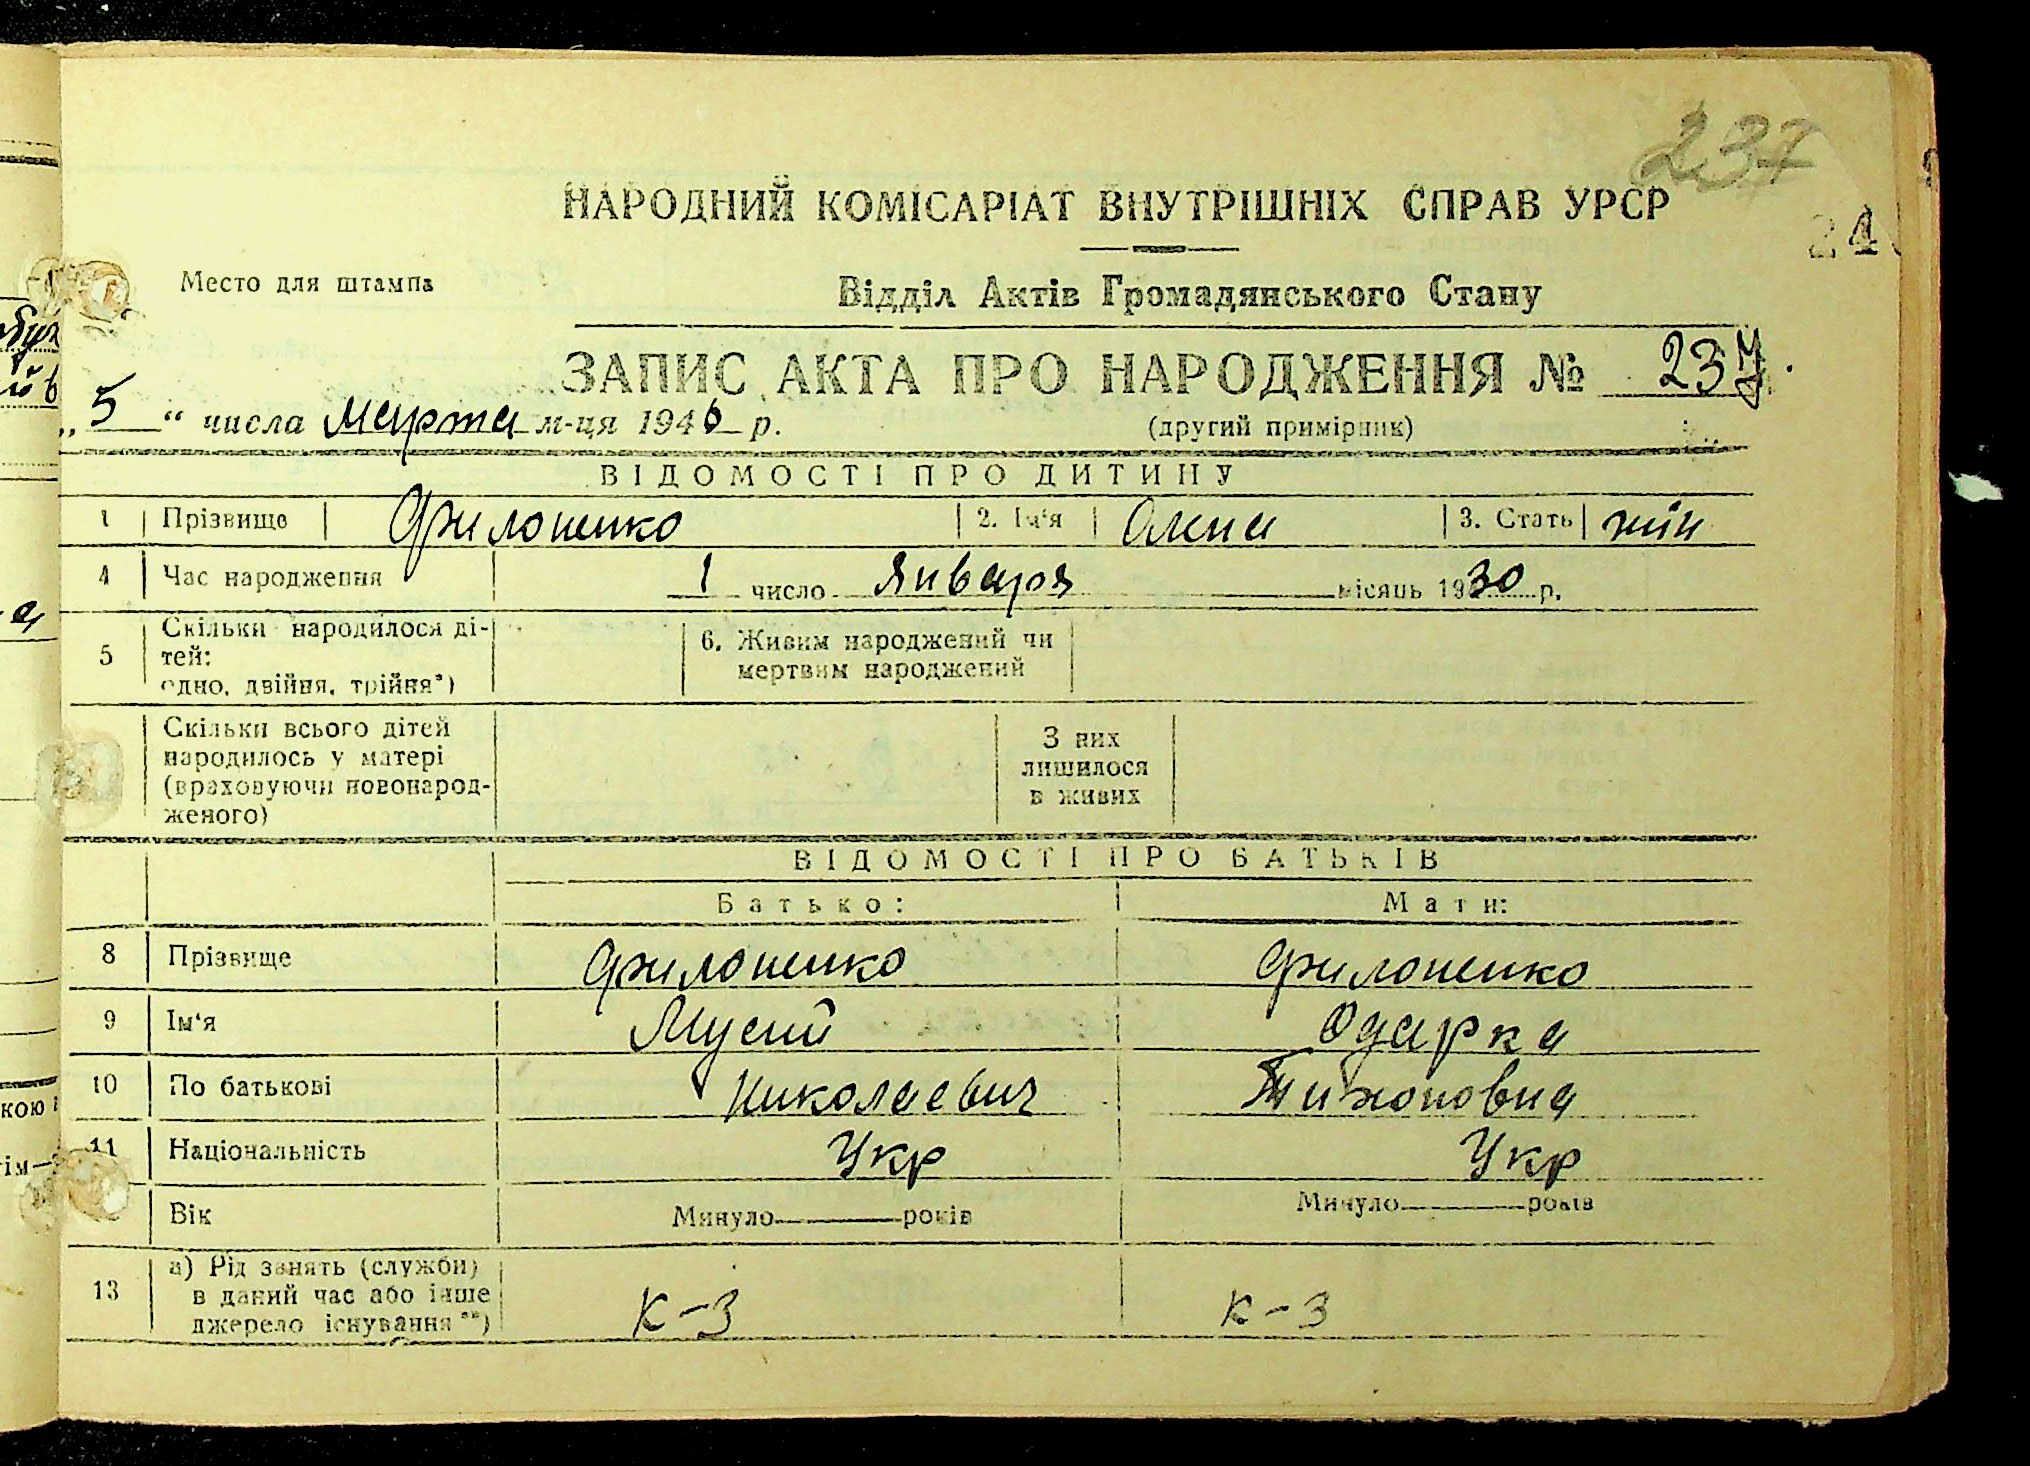 237
НАРОДНИЙ КОМІСАРІАТ ВНУТРІШНІХ СПРАВ УРСР
24
Место для штампа
Відділ Актів Громадянського Стану
ЗАПИС АКТА ПРО НАРОДЖЕННЯ № 237.
„ 5 “ числа марта м-ця 1946 р.
(другий примірник)
ВІДОМОСТІ ПРО ДИТИНУ
1 Прізвище Филоненко 2. Ім‘я Олена 3. Стать жін
4 Час народження 1 число Января місяць 1930 р.
5 Скільки народилося ді-
тей:
одно, двійня, трійня*)
6. Живим народжений чи
мертвим народжений
Скільки всього дітей
народилось у матері
(враховуючи новонарод-
женого)
З них
лишилося
в живих
ВІДОМОСТІ ПРО БАТЬКІВ
Батько: Мати:
8 Прізвище Филоненко Филоненко
9 Ім‘я Мусий Одарка
10 По батькові Николаевич Тихоновна
11 Національність Укр Укр
Вік Минуло років Минуло років
13 а) Рід занять (служби)
в даний час або інше
джерело існування **)
К-З К-З